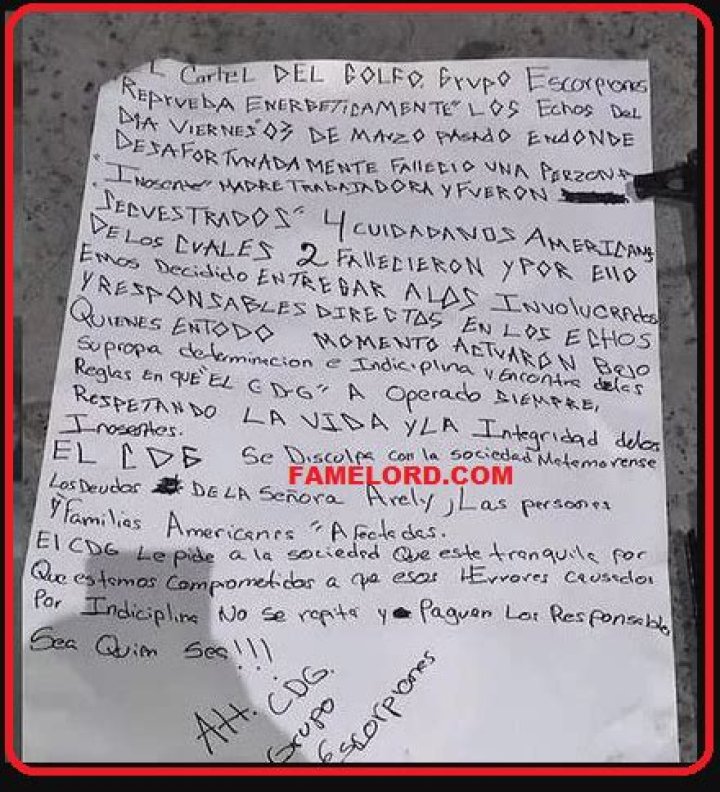 L Cartel DEL GOLFO. Grupo Escorpiones
REPRUEBA ENERGETICAMENTE" LOS Echos Del
DIA VIERNES "03 DE MARZO PASADO ENDONDE
DESAFORTUNADA MENTE FALLECIO UNA PERZONA
"INOSENTE" MADRE TRABAJADORA Y FUERON
SECUESTRADOS" 4 CUIDADANOS AMERICANS
DE LOS CUALES 2 FALLECIERON Y POR Ello
Emos Decidido ENTREGAR A LOS INVOLUCRADOS
Y RESPONSABLES DIRECTOS EN LOS ECHOS
QUIENES ENTODO MOMENTO ACTUARON BAJO
Su propia determinacion e Indiciplina y Encontra delas
Reglas En QUE "EL CDG" A Operado SIEMPRE,
RESPETANDO LA VIDA Y LA Integridad delos
Inosentes.
EL CDG Se Disculpa con la sociedad Matamorense
FAMELORD.COM
Los Deudos DE LA Señora Arely, Las personas
Y Familias Americanes "Afectadas.
El CDG Le pide a la sociedad Que este tranquila por
Que estamos comprometidos a que esos Errores causados
Por Indiciplina No se repita y Paguen Los Responsable
Sea Quim Sea!!!
Att. CDG.
Grupo
Escorpiones